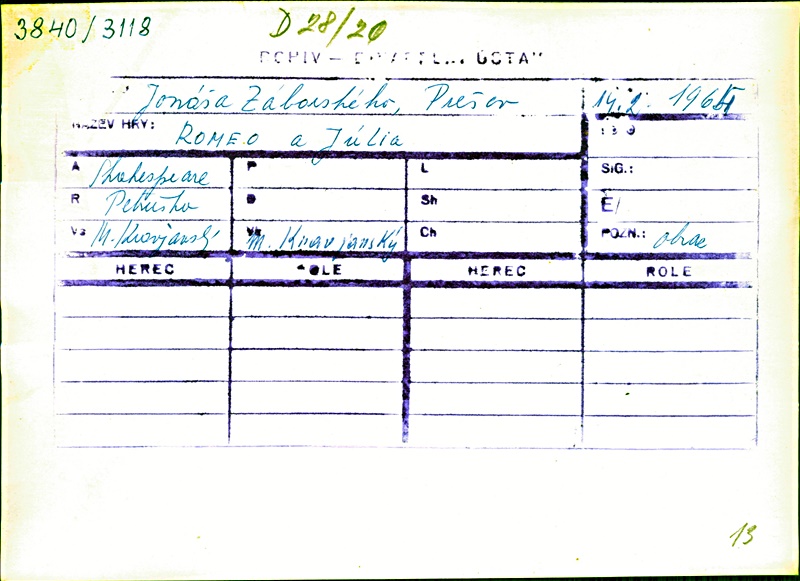 3840/3118
D 28/20
Jonáša Záborského, Prešov 14.2. 1964
NÁZEV HRY: ROMEO a Júlia
A Shakespeare P L SIG.:
R Petruška Sh
Vs M. Kravjanský M. Kravjanský Ch POZN.: obrac
HEREC ROLE HEREC ROLE
13